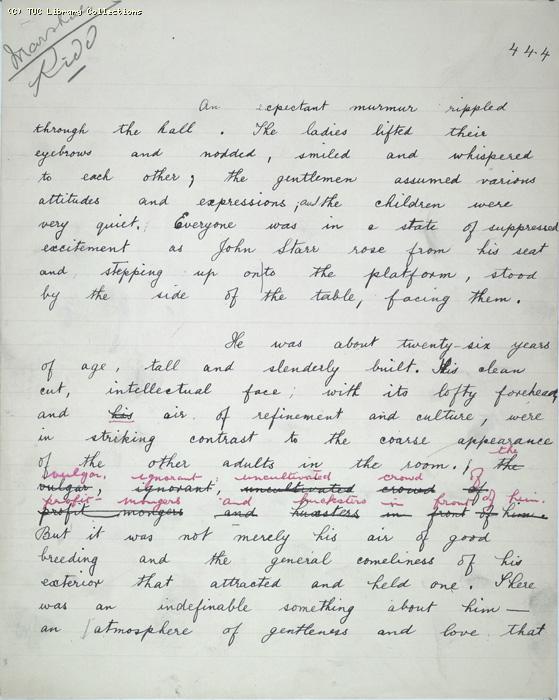 (C) TUC Library Collections
Marshall
Kidd
444
An expectant murmur rippled
through the hall. The ladies lifted their
eyebrows and nodded, smiled and whispered
to each other; the gentlemen assumed various
attitudes and expressions; and the children were
very quiet. Everyone was in a state of suppressed
excitement as John Starr rose from his seat
and stepping up onto the platform, stood
by the side of the table, facing them.
He was about twenty-six years
of age, tall and slenderly built. His clean
cut, intellectual face; with its lofty forehead,
and his air of refinement and culture, were
in striking contrast to the coarse appearance
of the other adults in the room, the
the
vulgar, ignorant uncultivated crowd of
vulgar, ignorant, uncultivated crowd of
profit-mongers and hucksters in front of him.
profit mongers and huxsters in front of him.
But it was not merely his air of good
breeding and the general comeliness of his
exterior that attracted and held one. There
was an indefinable something about him —
an atmosphere of gentleness and love that